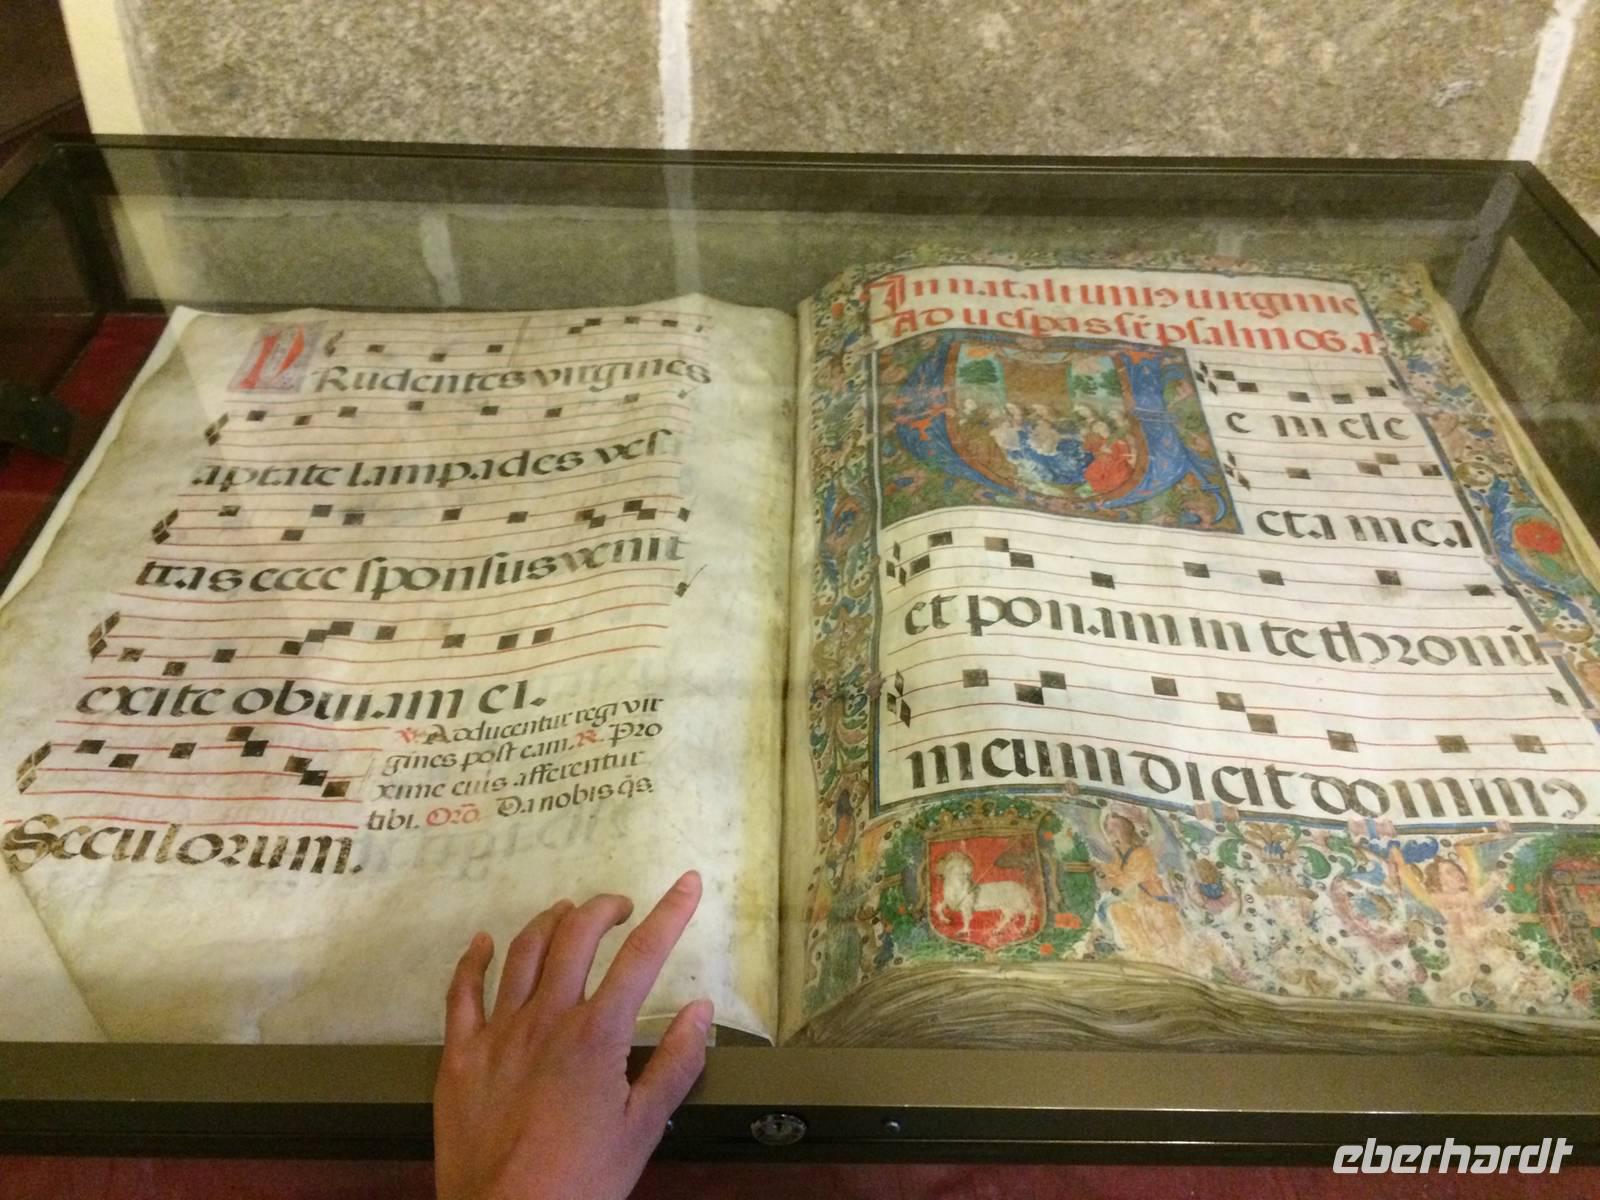 PRudentes virgines
aptate lampades vest
tras ecce sponsus venit
exite obuiam ei.
℣. Adducentur regi vir
gines post eam. ℟. Pro
xime eius afferentur
tibi. Orõ. Da nobis q̃s.
Seculorum.
In natali unius uirginis
Ad uespas sr̃ psalmos. a.
Ueni ele
cta mea
et ponam in te thronũ
meum dicit dominus
eberhardt